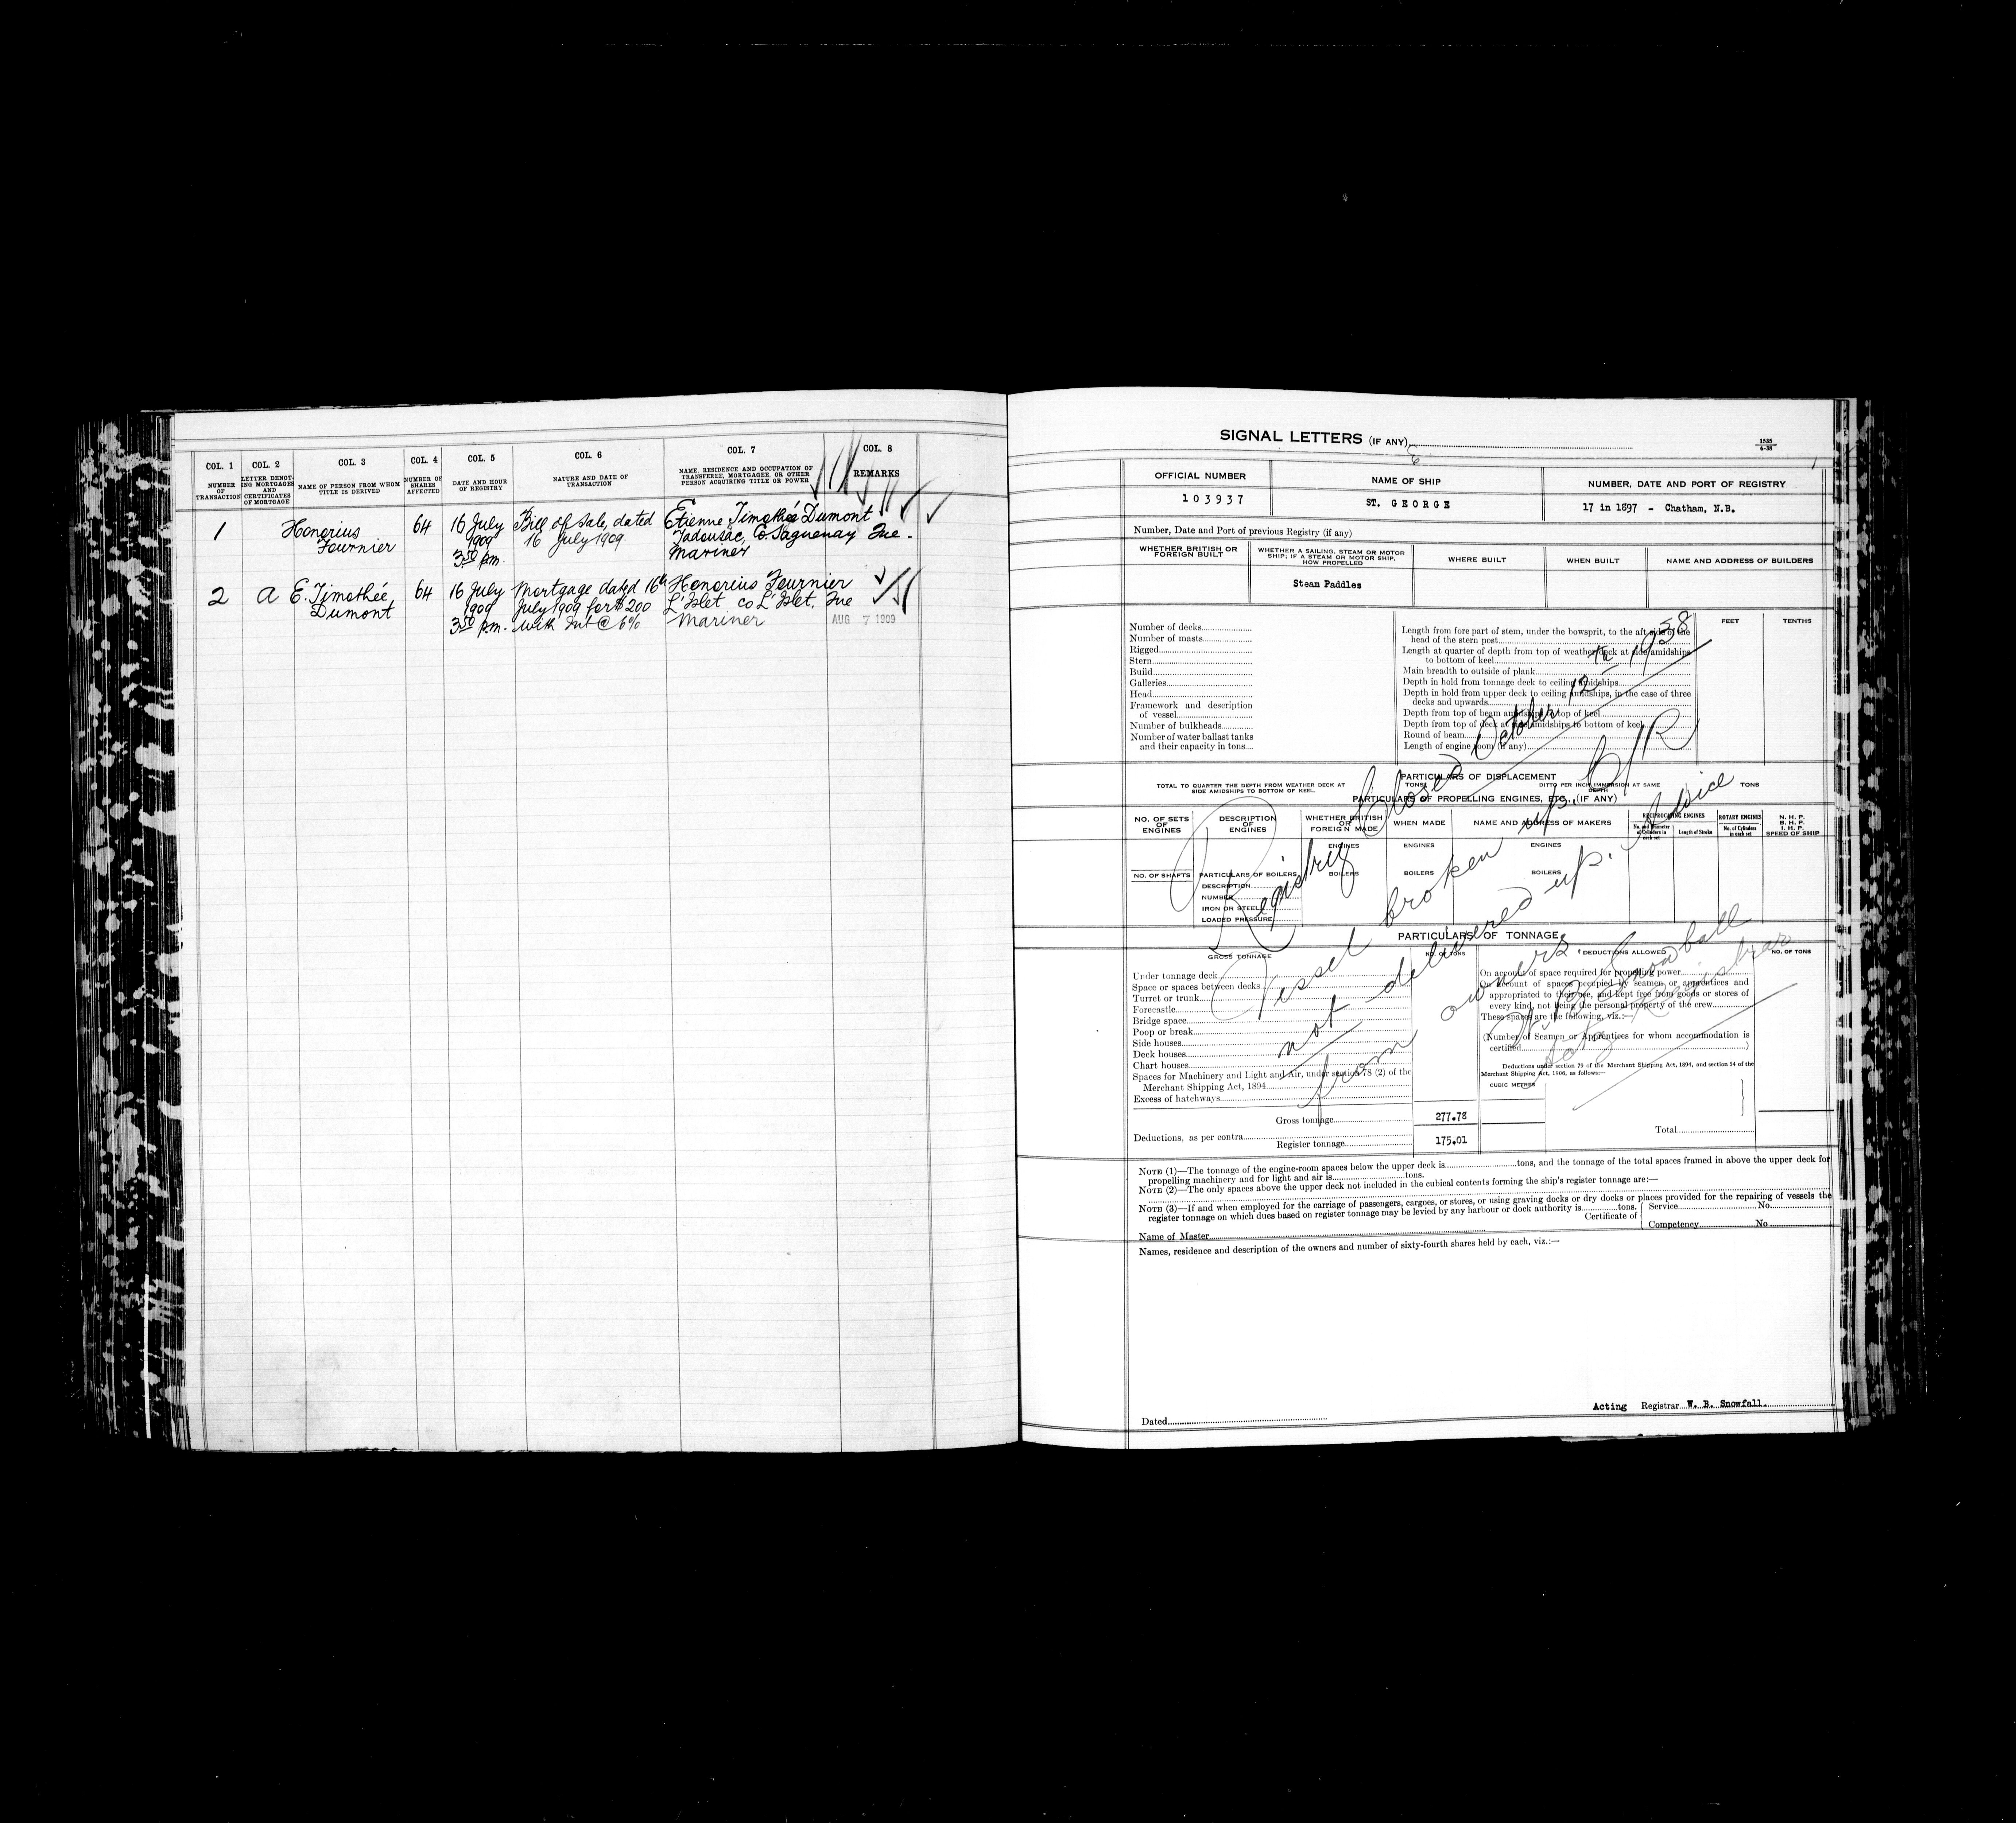 COL. 1 COL. 2 COL. 3 COL. 4 COL. 5 COL. 6 COL. 7 COL. 8
NUMBER OF TRANSACTION
LETTER DENOTING MORTGAGES AND CERTIFICATES OF MORTGAGE
NAME OF PERSON FROM WHOM TITLE IS DERIVED
NUMBER OF SHARES AFFECTED
DATE AND HOUR OF REGISTRY
NATURE AND DATE OF TRANSACTION
NAME, RESIDENCE AND OCCUPATION OF TRANSFEREE, MORTGAGEE, OR OTHER PERSON ACQUIRING TITLE OR POWER
REMARKS
1 Honorius 64 16 July Bill of Sale, dated Etienne Timothée Dumont
Fournier 1909 16 July 1909 Tadousac, Co Saguenay Que.
3.50 p.m. Mariner
2 A E. Timothée 64 16 July Mortgage dated 16th Honorius Fournier
Dumont 1909 July 1909 for $200 L'Islet, co L'Islet, Que
3.50 p.m. with Int @ 6% Mariner AUG 7 1909
SIGNAL LETTERS (IF ANY)
1535
6-38
OFFICIAL NUMBER NAME OF SHIP NUMBER, DATE AND PORT OF REGISTRY
103937 ST. GEORGE 17 in 1897 - Chatham, N.B.
Number, Date and Port of previous Registry (if any)
WHETHER BRITISH OR FOREIGN BUILT
WHETHER A SAILING, STEAM OR MOTOR SHIP; IF A STEAM OR MOTOR SHIP, HOW PROPELLED
WHERE BUILT WHEN BUILT NAME AND ADDRESS OF BUILDERS
Steam Paddles
Number of decks
Number of masts
Rigged
Stern
Build
Galleries
Head
Framework and description
of vessel
Number of bulkheads
Number of water ballast tanks
and their capacity in tons
FEET TENTHS
Length from fore part of stem, under the bowsprit, to the aft side of the
head of the stern post
Length at quarter of depth from top of weather deck at side amidships
to bottom of keel
Main breadth to outside of plank
Depth in hold from tonnage deck to ceiling amidships
Depth in hold from upper deck to ceiling amidships, in the case of three
decks and upwards
Depth from top of beam amidships to top of keel
Depth from top of deck at side amidships to bottom of keel
Round of beam
Length of engine room (if any)
PARTICULARS OF DISPLACEMENT
TOTAL TO QUARTER THE DEPTH FROM WEATHER DECK AT SIDE AMIDSHIPS TO BOTTOM OF KEEL. TONS DITTO PER INCH IMMERSION AT SAME DEPTH TONS
PARTICULARS OF PROPELLING ENGINES, ETC., (IF ANY)
NO. OF SETS OF ENGINES
DESCRIPTION OF ENGINES
WHETHER BRITISH OR FOREIGN MADE
WHEN MADE
NAME AND ADDRESS OF MAKERS
RECIPROCATING ENGINES
No. and Diameter of Cylinders in each set Length of Stroke
ROTARY ENGINES
No. of Cylinders in each set
N. H. P.
B. H. P.
I. H. P.
SPEED OF SHIP
ENGINES ENGINES ENGINES
NO. OF SHAFTS PARTICULARS OF BOILERS BOILERS BOILERS BOILERS
DESCRIPTION
NUMBER
IRON OR STEEL
LOADED PRESSURE
Registry Closed October 12th 1938
Vessel broken up. B/R
not delivered up. Advice
from owners
W. B. Snowball
Actg Registrar
PARTICULARS OF TONNAGE
GROSS TONNAGE NO. OF TONS DEDUCTIONS ALLOWED NO. OF TONS
Under tonnage deck
Space or spaces between decks
Turret or trunk
Forecastle
Bridge space
Poop or break
Side houses
Deck houses
Chart houses
Spaces for Machinery and Light and Air, under section 78 (2) of the
Merchant Shipping Act, 1894
Excess of hatchways
Gross tonnage 277.78
Deductions, as per contra
Register tonnage 175.01
On account of space required for propelling power
On account of spaces occupied by seamen or apprentices and
appropriated to their use, and kept free from goods or stores of
every kind, not being the personal property of the crew
These spaces are the following, viz.:—
(Number of Seamen or Apprentices for whom accommodation is
certified)
Deductions under section 79 of the Merchant Shipping Act, 1894, and section 54 of the
Merchant Shipping Act, 1906, as follows:—
CUBIC METRES
Total
NOTE (1)—The tonnage of the engine-room spaces below the upper deck is tons, and the tonnage of the total spaces framed in above the upper deck for
propelling machinery and for light and air is tons.
NOTE (2)—The only spaces above the upper deck not included in the cubical contents forming the ship's register tonnage are:—
NOTE (3)—If and when employed for the carriage of passengers, cargoes, or stores, or using graving docks or dry docks or places provided for the repairing of vessels the
register tonnage on which dues based on register tonnage may be levied by any harbour or dock authority is tons.
Certificate of Service No.
Competency No
Name of Master
Names, residence and description of the owners and number of sixty-fourth shares held by each, viz.:—
Dated
Acting Registrar W. B. Snowfall.